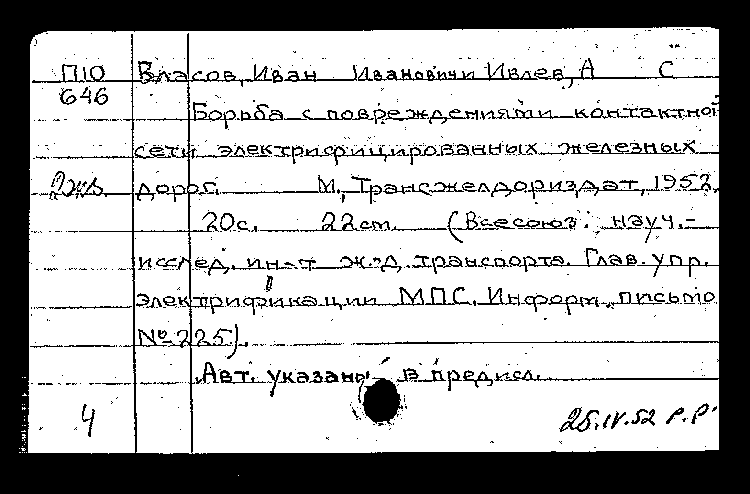 П10 Власов, Иван Ивановичи Ивлев, А С
646
Борьба с повреждениями контактной
сети электрифицированных железных
2экз. дорог. М., Трансжелдориздат, 1952.
20с. 22см. (Всесоюз. науч.-
исслед. ин-т ж.-д. транспорта. Глав. упр.
электрификации МПС. Информ. письмо
№225).
Авт. указаны в предисл.
4 25.IV.52 Р.Р.